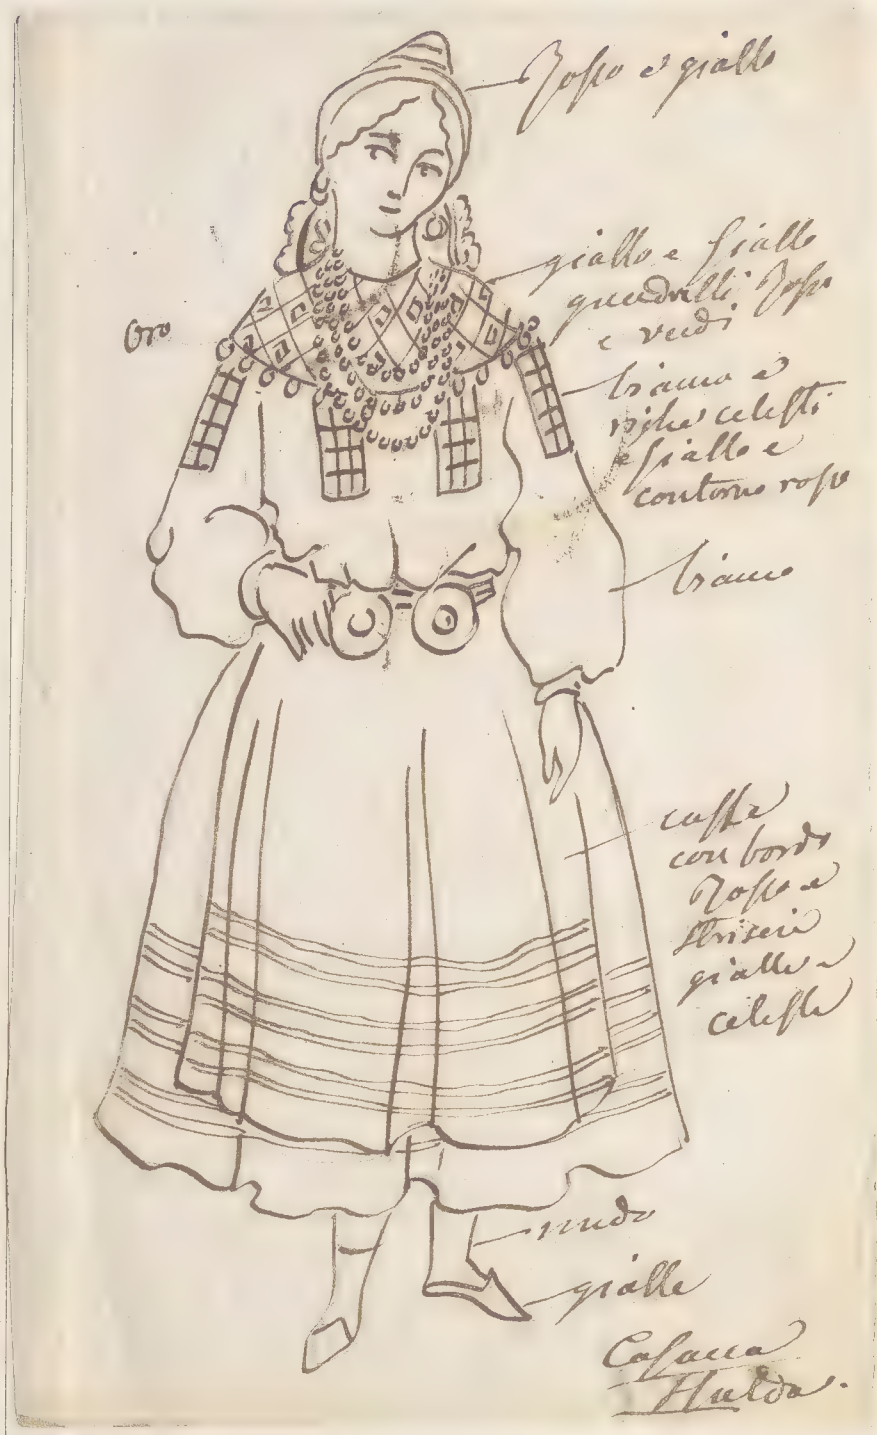 Rosso e giallo
giallo e giallo
quadrelli Rosso
e verdi
Oro
bianco e
righe celesti
e giallo e
contorno rosso
bianco
caffe
con bordo
Rosso e
striscie
gialle e
celeste
nudo
gialle
Cosacca